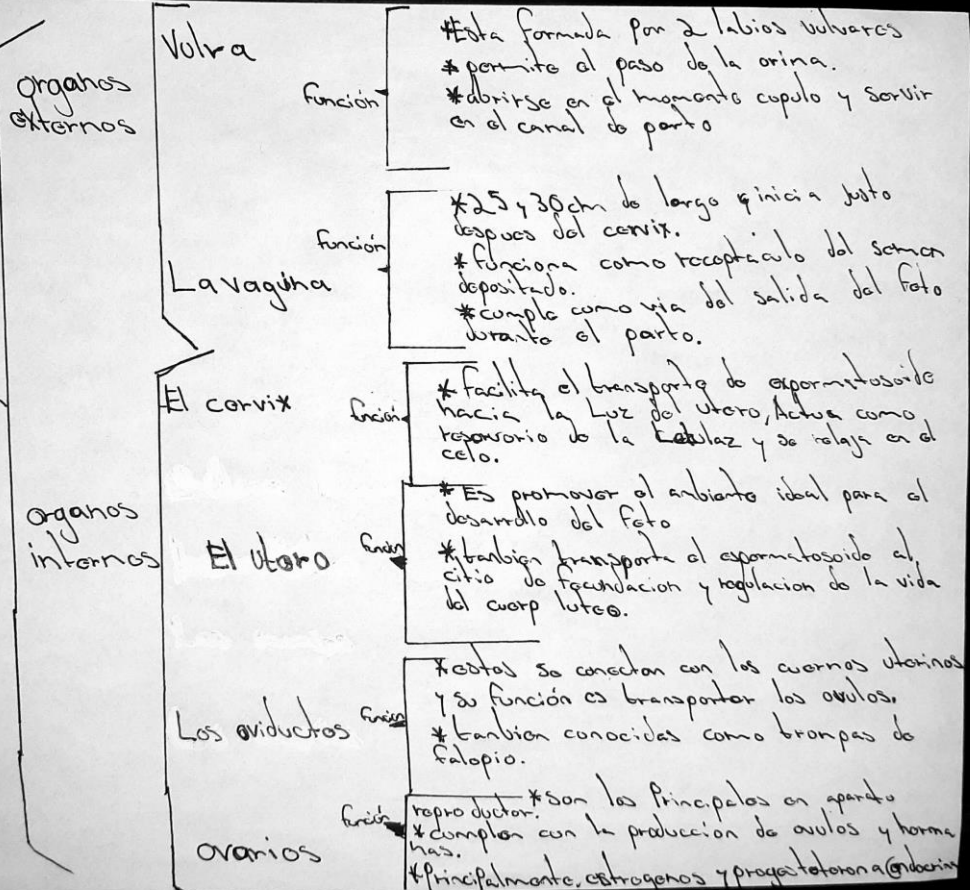 organos
externos
Vulva
función
*Esta formada por 2 labios vulvares
* permite el paso de la orina.
*abrirse en el momento copulo y servir
en el canal de parto
La vagina
función
*25 y 30cm de largo q inicia justo
despues del cervix.
*funciona como receptaculo del semen
depositado.
*cumple como via del salida del feto
durante el parto.
organos
internos
El cervix
función
* Facilita el transporte de expermatosoide
hacia la Luz del utero, Actua como
reservorio de la y se relaja en el
celo.
El utero
función
* Es promover el anbiente ideal para el
desarrollo del feto
*tanbien transporta el espermatosoide al
citio de fecundacion y regulacion de la vida
del cuerp luteo.
Los oviductos
función
*estos se conectan con los cuernos uterinos
y su función es transporter los ovulos.
*tanbien conocidas como trompas de
falopio.
ovarios
función
*Son los Principales en aparato
reproductor.
*cumplen con la produccion de ovulos y hormo
nas.
*Principalmente. estrogenos y